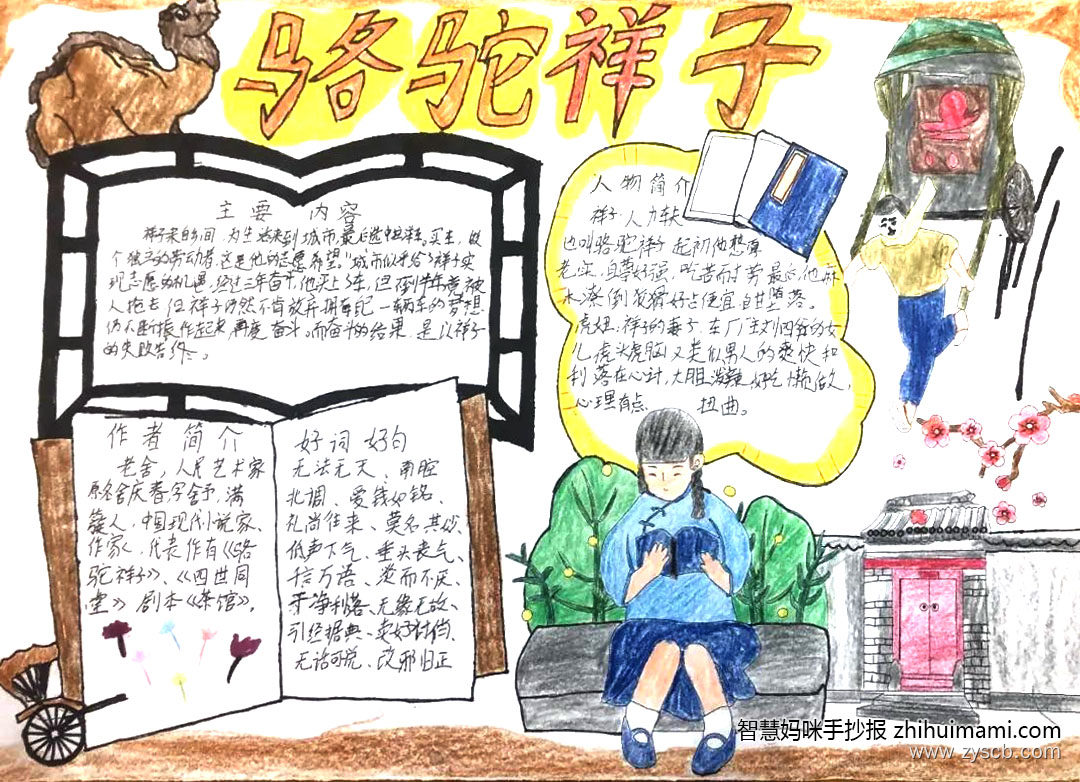 骆驼祥子
主要 内容
祥子来自乡间,为生活来到城市,最后选中拉洋车。买车,做
个独立的劳动者,这是他的志愿希望。"城市似乎给了祥子实
现志愿的机遇,经过三年奋斗,他买上了车,但不到半年竟被
人抢去,但祥子仍然不肯放弃拥有自己一辆车的梦想
仍不断振作起来,再度奋斗。而奋斗的结果,是以祥子
的失败告终。
人物简介
祥子 人力车夫
也叫骆驼祥子 起初他憨厚
老实,自尊好强、吃苦而耐劳 最后,他麻
木潦倒 狡猾 好占便宜 自甘堕落。
虎妞:祥子的妻子、车厂厂主刘四爷的女
儿 虎头虎脑,又类似男人的爽快和
利落在心计,大胆泼辣,好吃懒做,
心理有点 扭曲。
作者简介
老舍,人民艺术家
原名舒庆春字舍予,满
族人,中国现代小说家、
作家,代表作有《骆
驼祥子》、《四世同
堂》剧本《茶馆》。
好词 好句
无法无天、南腔
北调、爱钱如铭、
礼尚往来、莫名其妙、
低声下气、垂头丧气、
千言万语、淡而不厌、
干净利落、无缘无故、
引经据典、卖好讨俏、
无话可说、改邪归正
智慧妈咪手抄报 zhihuimami.com
www.zyscb.com